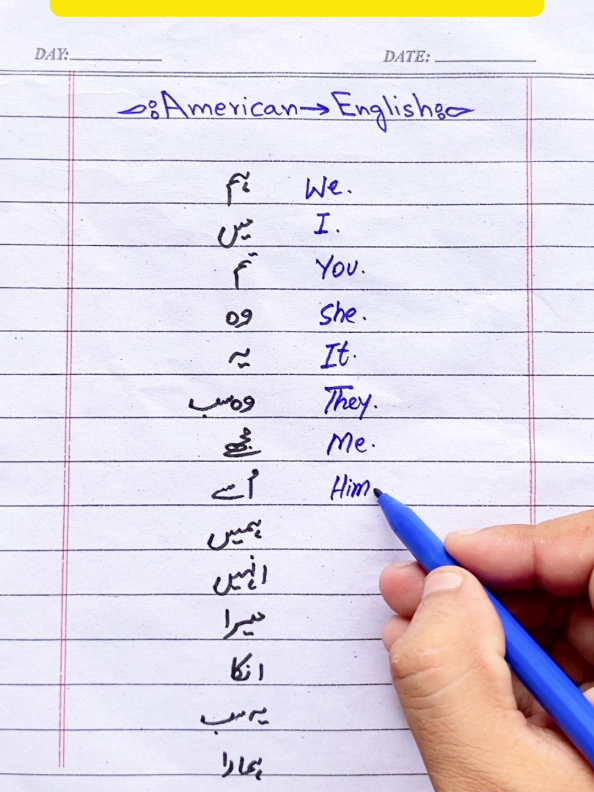 DAY: DATE:
American → English
ہم We.
میں I.
تم You.
وہ She.
یہ It.
وہ سب They.
مجھے Me.
اُسے Him
ہمیں
انہیں
میرا
انکا
یہ سب
ہمارا